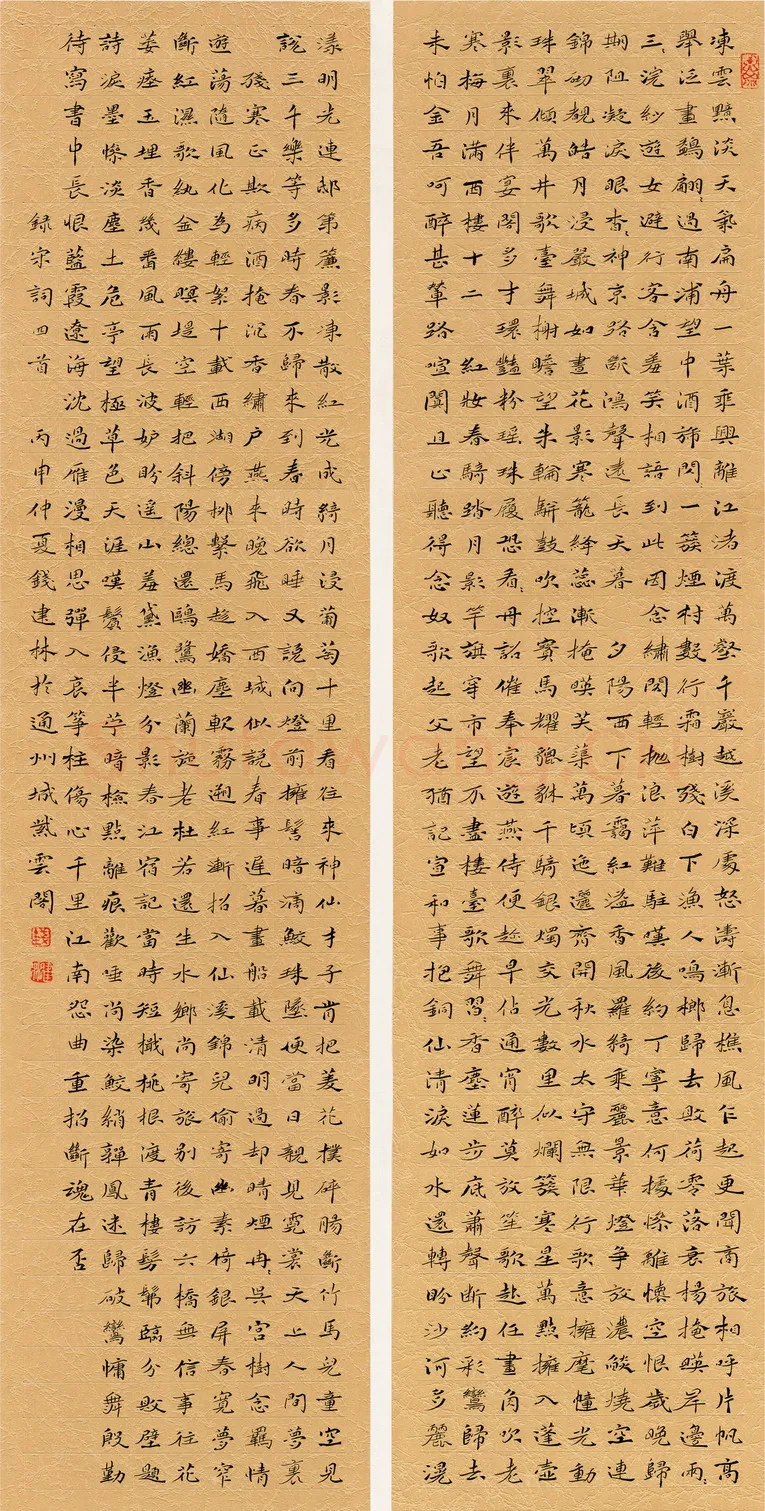 凍雲黯淡天氣扁舟一葉乘興離江渚渡萬壑千巖越溪深處怒濤漸息樵風乍起更聞商旅相呼片帆高
舉泛畫鷁翩翩過南浦望中酒旆閃閃一簇煙村數行霜樹殘日下漁人鳴榔歸去敗荷零落衰楊掩映岸邊兩兩
三三浣紗遊女避行客含羞笑相語到此因念繡閣輕拋浪萍難駐嘆後約丁寧竟何據慘離懷空恨歲晚歸
期阻凝淚眼杳杳神京路斷鴻聲遠長天暮 夕陽西下暮靄紅溢香風羅綺乘麗景華燈爭放濃燄燒空連
錦砌覩皓月浸嚴城如晝花影寒籠絳蕊漸掩映芙蕖萬頃迤邐齊開秋水太守無限行歌意擁麾幢光動
珠翠傾萬井歌臺舞榭瞻望朱輪駢鼓吹控寶馬耀貔貅千騎銀燭交光數里似爛簇寒星萬點擁入蓬壺
影裏來伴宴閣多才環豔粉瑤珠履恐看看丹詔催奉宸遊燕侍便趁早佔通宵醉莫放笙歌起任畫角吹老
寒梅月滿西樓十二 紅妝春騎踏月影竿旗穿市望不盡樓臺歌舞習習香塵蓮步底蕭聲断約彩鸞歸去
未怕金吾呵醉甚輦路喧闐且止聽得念奴歌起父老猶記宣和事抱銅仙清淚如水還轉盼沙河多麗滉
漾明光連邸第簾影凍散紅光成綺月浸葡萄十里看往來神仙才子肯把菱花撲碎腸斷竹馬兒童空見
說三千樂等多時春不歸來到春時欲睡又說向燈前擁髻暗滴鮫珠墜便當日親見霓裳天上人間夢裏
殘寒正欺病酒掩沉香繡戶燕來晚飛入西城似說春事遲暮畫船載清明過却晴煙冉冉吳宮樹念羈情
遊蕩隨風化為輕絮十載西湖傍柳繫馬趁嬌塵軟霧遡紅漸招入仙溪錦兒偷寄幽素倚銀屏春寬夢窄
斷紅濕歌紈金縷暝堤空輕把斜陽總還鷗鷺幽蘭旋老杜若還生水鄉尚寄旅別後訪六橋無信事往花
萎瘞玉埋香幾番風雨長波妒盼遙山羞黛漁燈分影春江宿記當時短檝桃根渡青樓髣髴臨分敗壁題
詩淚墨慘淡塵土危亭望極草色天涯嘆鬢侵半苧暗檢點離痕歡唾尚染鮫綃嚲鳳迷歸破鸞慵舞殷勤
待寫書中長恨藍霞遼海沈過雁漫相思彈入哀箏柱傷心千里江南怨曲重招斷魂在否
録宋詞四首 丙申仲夏錢建林於通州城紫雲閣